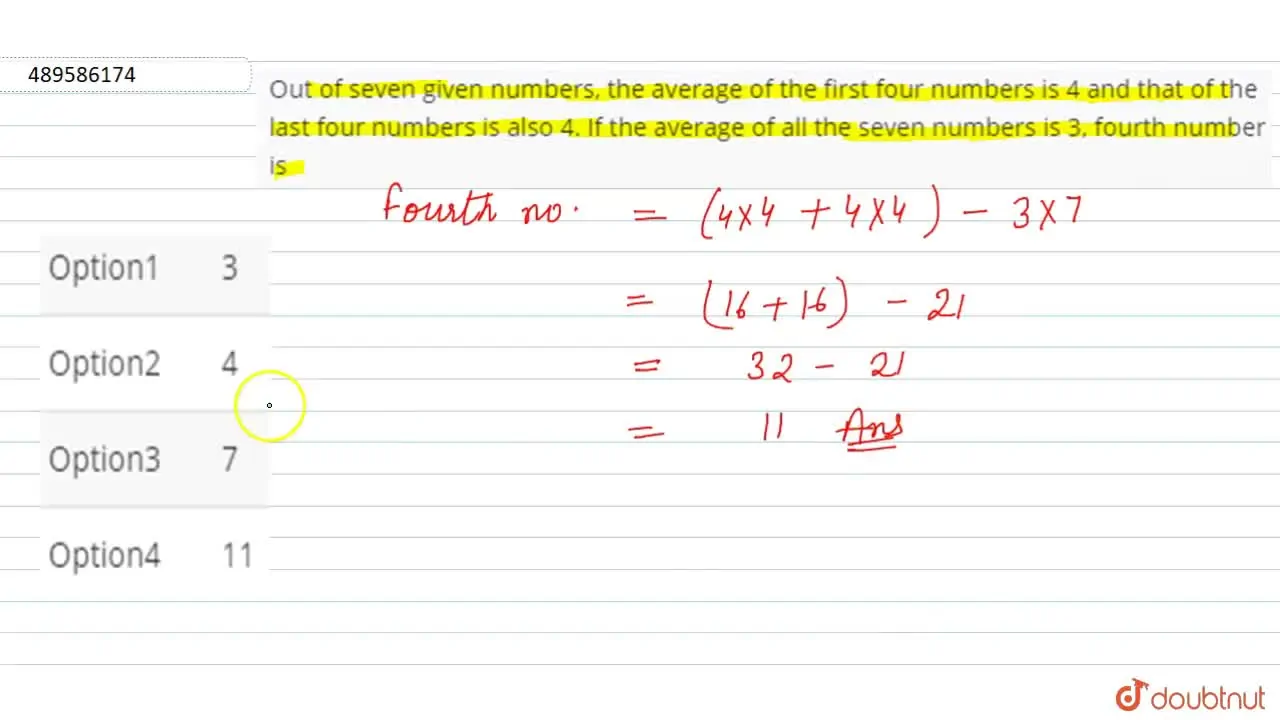 489586174
Out of seven given numbers, the average of the first four numbers is 4 and that of the
last four numbers is also 4. If the average of all the seven numbers is 3, fourth number
is
Fourth no. = (4x4 + 4x4) - 3x7
= (16 + 16) - 21
Option1 3
= 32 - 21
Option2 4
= 11 Ans
Option3 7
Option4 11
doubtnut